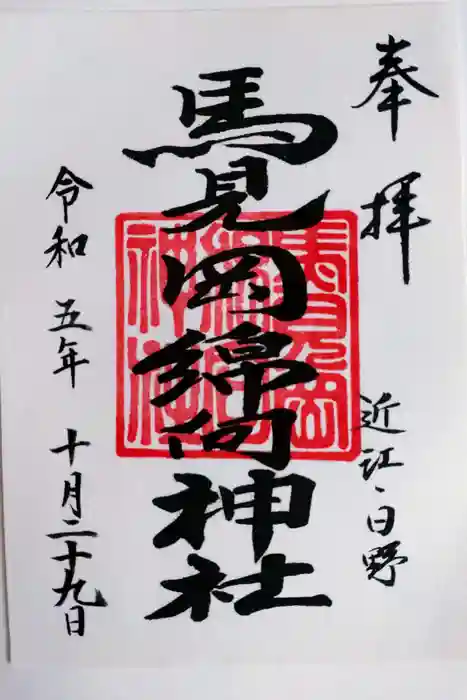 奉拝
近江・日野
馬見岡綿向神社
馬見岡綿向神社
令和五年十月二十九日